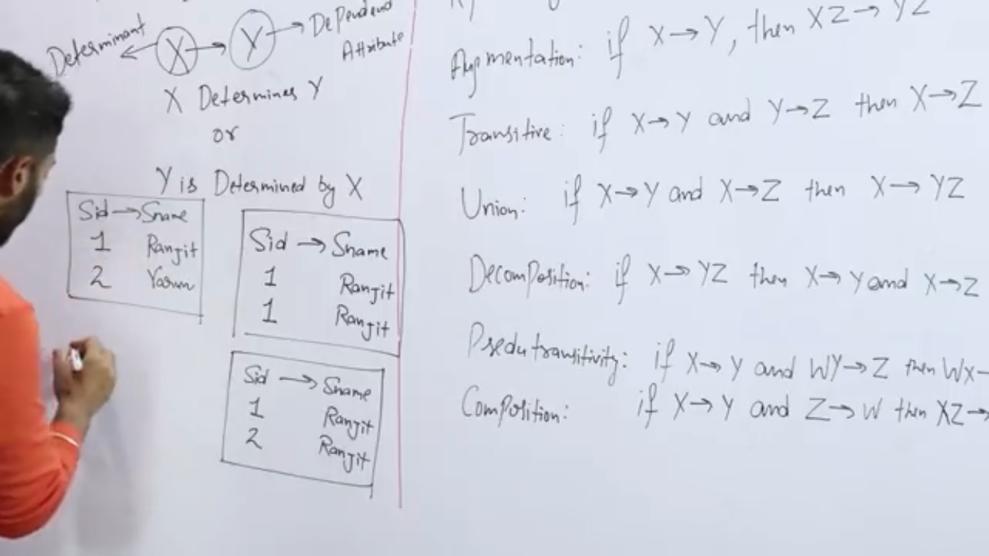 Determinant
X → Y → Dependend
Attribute
X Determines Y
or
Y is Determined by X
Sid → Sname
1 Ranjit
2 Varun
Sid → Sname
1 Ranjit
1 Ranjit
Sid → Sname
1 Ranjit
2 Ranjit
Augmentation: if X → Y, then XZ → YZ
Transitive: if X → Y and Y → Z then X → Z
Union: if X → Y and X → Z then X → YZ
Decomposition: if X → YZ then X → Y and X → Z
Psedutransitivity: if X → Y and WY → Z then WX →
Composition: if X → Y and Z → W then XZ →